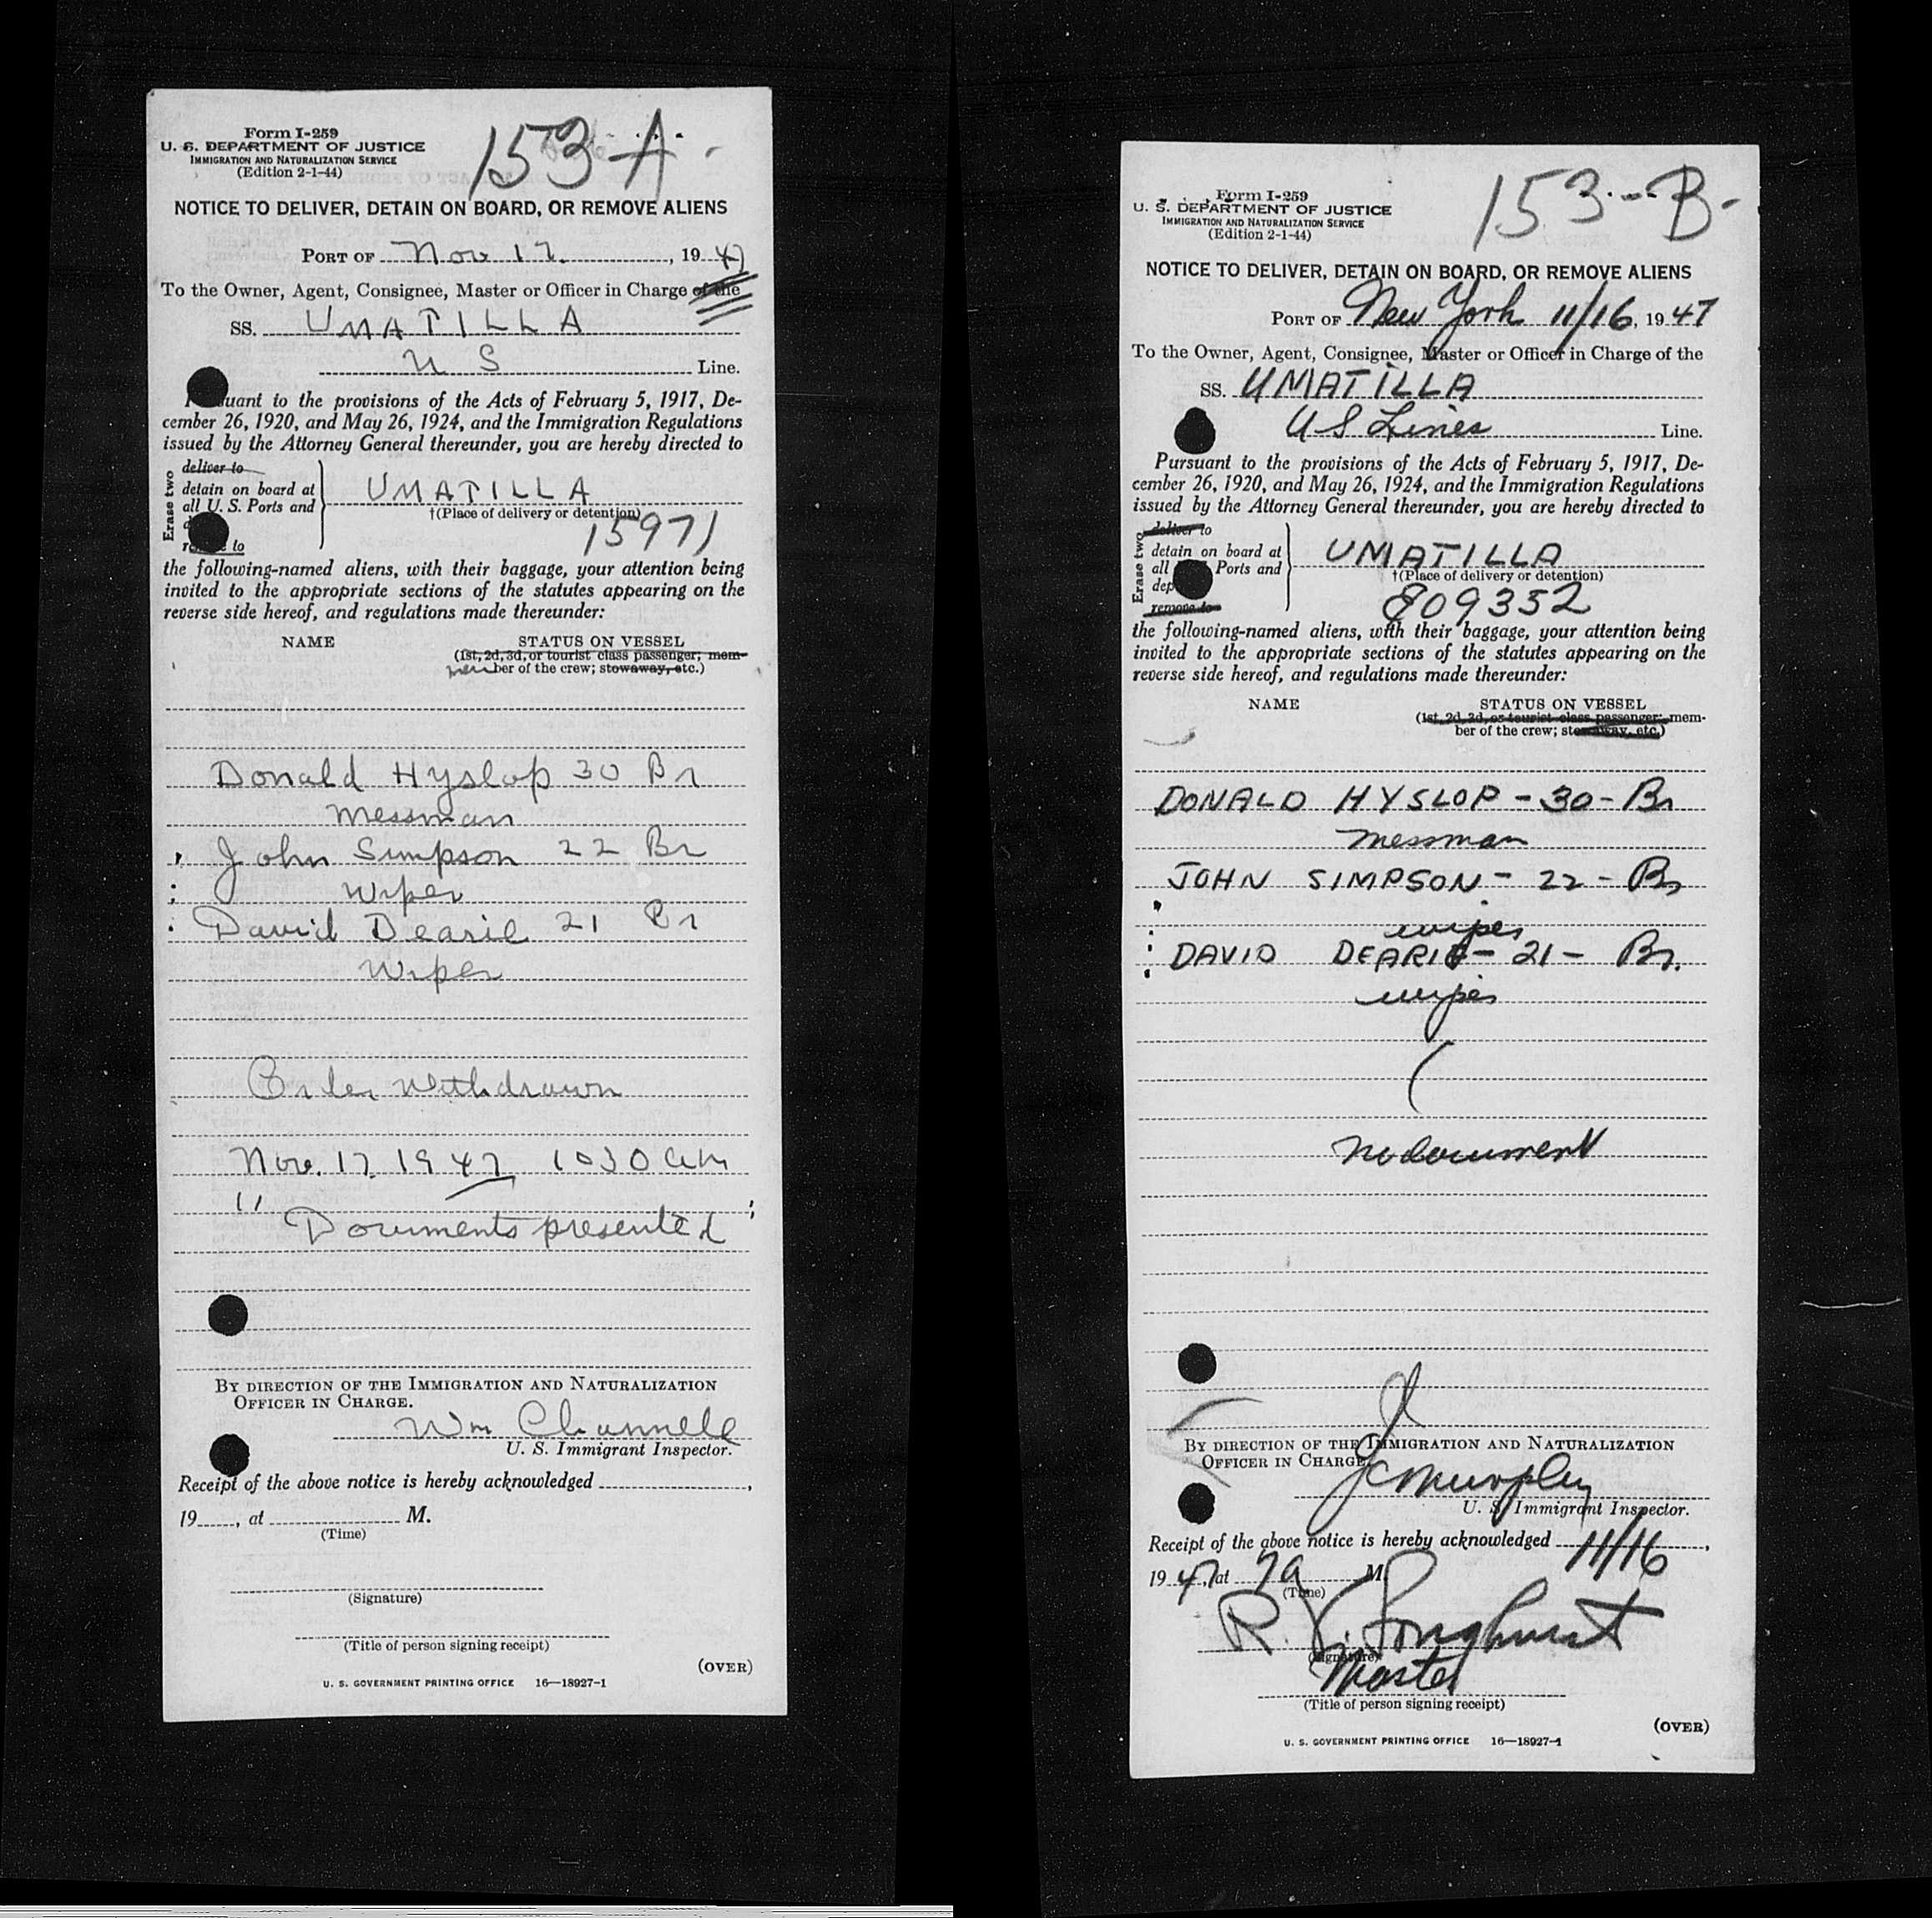 153-A
Form I-259
U. S. DEPARTMENT OF JUSTICE
IMMIGRATION AND NATURALIZATION SERVICE
(Edition 2-1-44)
NOTICE TO DELIVER, DETAIN ON BOARD, OR REMOVE ALIENS
PORT OF Nov 17, 1947
To the Owner, Agent, Consignee, Master or Officer in Charge of the
SS. UMATILLA
U S Line.
Pursuant to the provisions of the Acts of February 5, 1917, De-
cember 26, 1920, and May 26, 1924, and the Immigration Regulations
issued by the Attorney General thereunder, you are hereby directed to
Erase two
deliver to
detain on board at
all U. S. Ports and
remove to
UMATILLA
†(Place of delivery or detention)
15971
the following-named aliens, with their baggage, your attention being
invited to the appropriate sections of the statutes appearing on the
reverse side hereof, and regulations made thereunder:
NAME STATUS ON VESSEL
(1st, 2d, 3d, or tourist class passenger; mem-
mem ber of the crew; stowaway, etc.)
Donald Hyslop 30 Br
Messman
John Simpson 22 Br
Wiper
David Dearie 21 Br
Wiper
Order Withdrawn
Nov. 17 1947 1030 am
" Documents presented
BY DIRECTION OF THE IMMIGRATION AND NATURALIZATION
OFFICER IN CHARGE.
Wm Channell
U. S. Immigrant Inspector.
Receipt of the above notice is hereby acknowledged ,
19 , at M.
(Time)
(Signature)
(Title of person signing receipt)
(OVER)
U. S. GOVERNMENT PRINTING OFFICE 16—18927-1
153-B-
Form I-259
U. S. DEPARTMENT OF JUSTICE
IMMIGRATION AND NATURALIZATION SERVICE
(Edition 2-1-44)
NOTICE TO DELIVER, DETAIN ON BOARD, OR REMOVE ALIENS
PORT OF New York 11/16, 1947
To the Owner, Agent, Consignee, Master or Officer in Charge of the
SS. UMATILLA
US Lines Line.
Pursuant to the provisions of the Acts of February 5, 1917, De-
cember 26, 1920, and May 26, 1924, and the Immigration Regulations
issued by the Attorney General thereunder, you are hereby directed to
Erase two
deliver to
detain on board at
all Ports and
dep
remove to
UMATILLA
†(Place of delivery or detention)
809352
the following-named aliens, with their baggage, your attention being
invited to the appropriate sections of the statutes appearing on the
reverse side hereof, and regulations made thereunder:
NAME STATUS ON VESSEL
(1st, 2d, 3d, or tourist class passenger; mem-
ber of the crew; stowaway, etc.)
DONALD HYSLOP - 30 - Br
messman
JOHN SIMPSON - 22 - Br
wiper
DAVID DEARIE - 21 - Br.
wiper
No document
BY DIRECTION OF THE IMMIGRATION AND NATURALIZATION
OFFICER IN CHARGE.
J C Murphy
U. S. Immigrant Inspector.
Receipt of the above notice is hereby acknowledged 11/16,
1947, at 7a M.
(Time)
R. K. Longhurst
(Signature)
Master
(Title of person signing receipt)
(OVER)
U. S. GOVERNMENT PRINTING OFFICE 16—18927-1